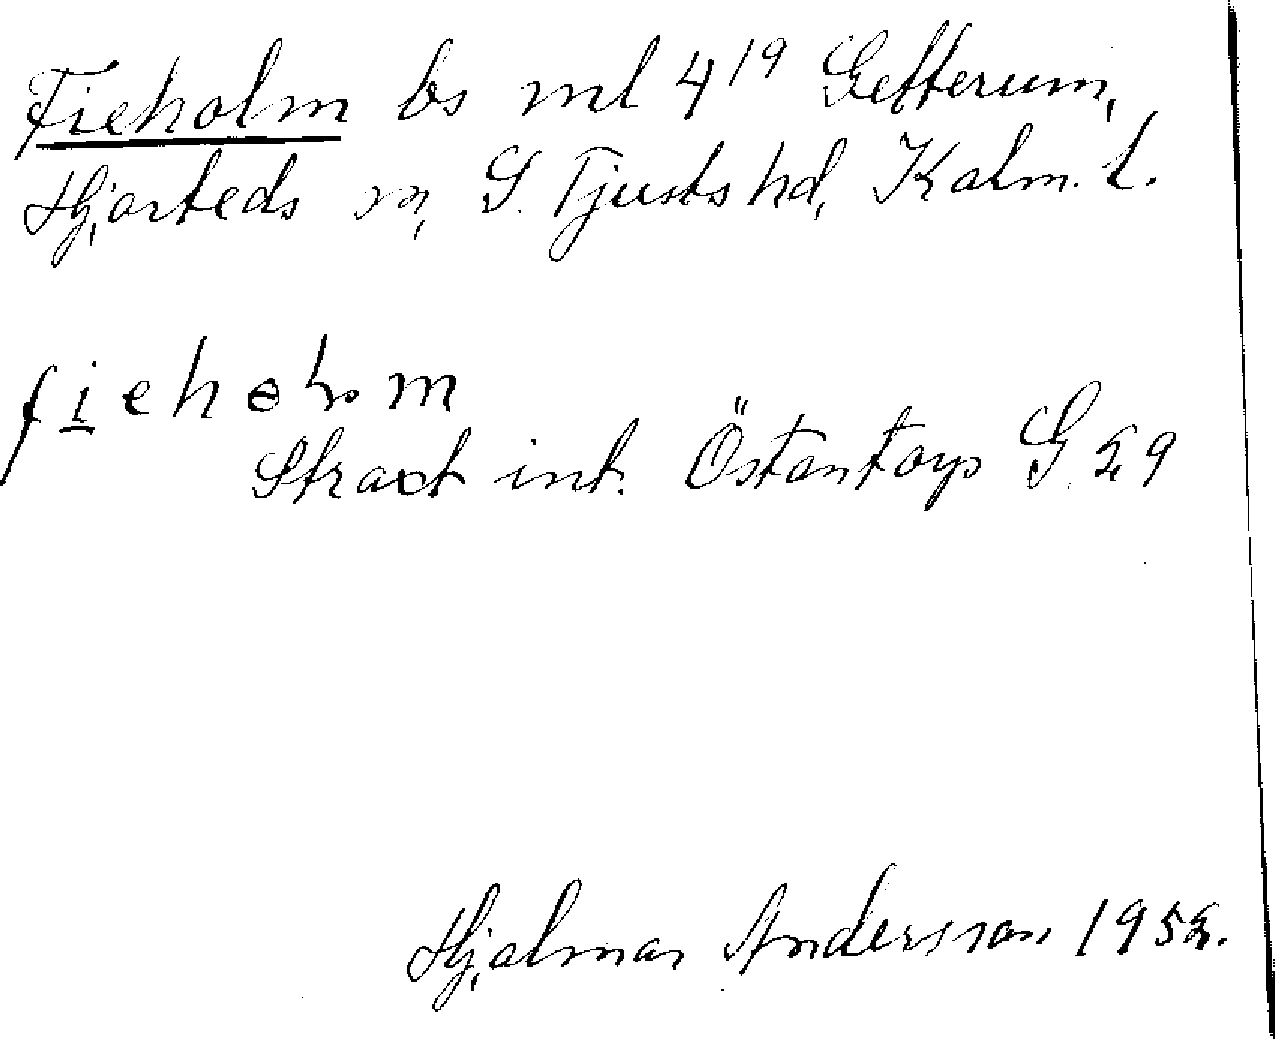 Fieholm bs ml 4¹⁹ Getterum,
Hjorteds sn, S. Tjusts hd, Kalm. l.
fieholm
Straxt int. Östantorps G. 29
Hjalmar Andersson 1952.